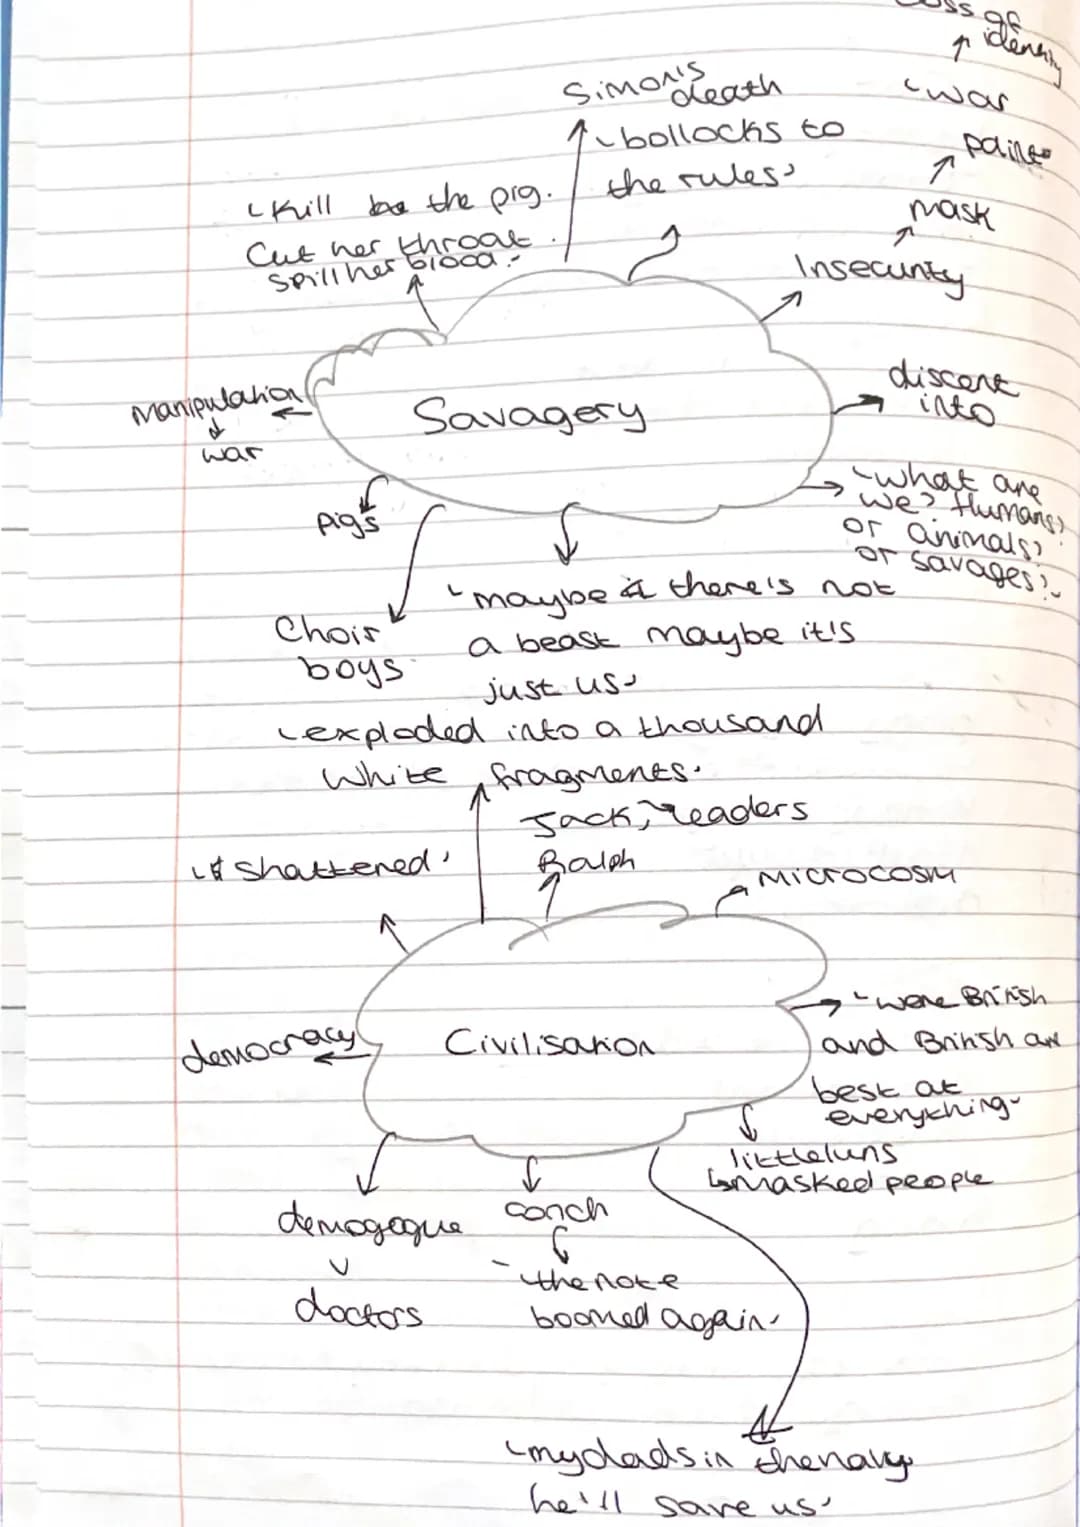 Loss of
identity
'war
paint'
mask
Insecurity
Simon's
death
'bollocks to
the rules'
'Kill the pig.
Cut her throat.
Spill her blood.'
Manipulation
war
Savagery
discent
into
'what are
we? Humans?
or animals?
or savages?'
pigs
Choir
boys
'maybe there's not
a beast maybe it's
just us'
'exploded into a thousand
white fragments.
Jack, leaders
Ralph
'shattered'
Microcosm
democracy
Civilisation
'were British
and British are
best at
everything'
littleluns
masked people
demogogue
doctors
conch
'the note
boomed again'
'my dads in the navy
he'll save us'